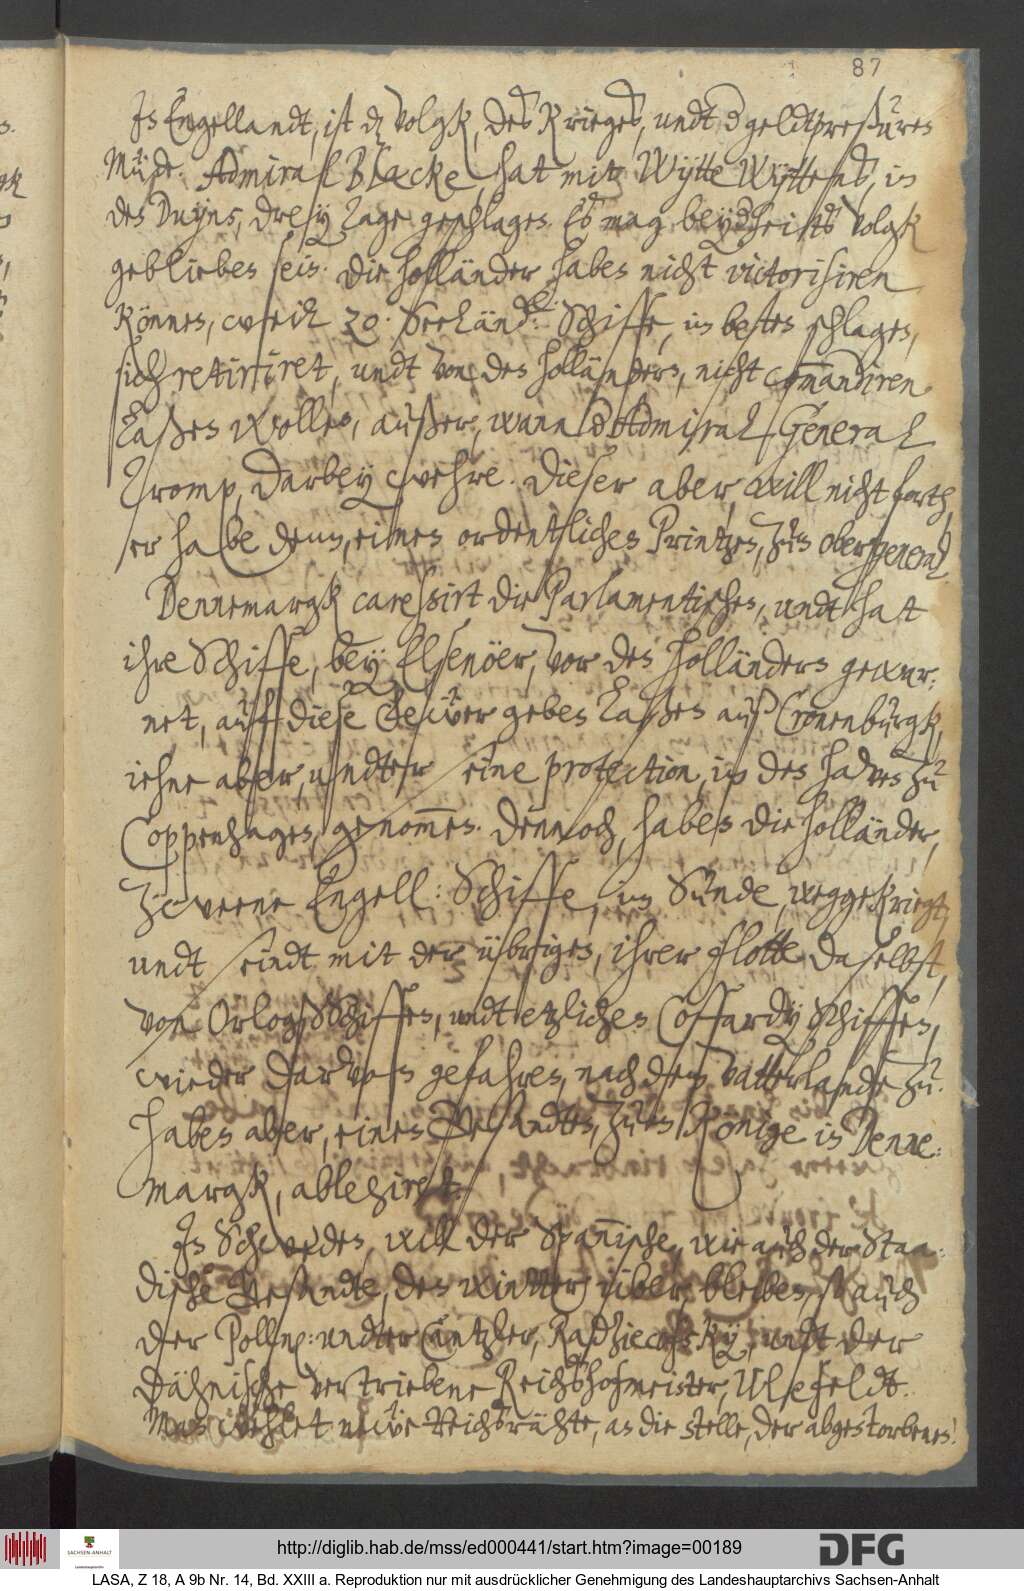 87
In Engellandt, ist dz volgk, des Krieges, undt d geldtpreßuren
Müde. Admiral Blacke, hat mit Wytte Wyttens, in
den Duyns, drey Tage geschlagen. Es mag beyderseits volgk
geblieben sein. Die Holländer haben nicht victorisiren
können, weil 20. Seeländ: Schiffe, im besten schlagen,
sich retiriret, undt von den Holländern, nicht com̄andiren
Laßen wollen, außer, wann d Admiral General
Tromp, darbey wehre. Dieser aber, will nicht forth,
er habe denn, einen ordentlichen Printzen, zum Obergeneral
Dennemargk caressirt die Parlamentischen, undt hat
ihre Schiffe, bey Elsenöer, vor den Holländern gewar:
net, auf diese Fewer geben Laßen auß Cronenburgk,
iehne aber, undter seine protection, in den Haven zu
Coppenhagen, genom̄en. Dennoch, haben die Holländer,
Zweene Engell: Schiffe, im Sunde, weggekriegt,
undt seindt mit der übrigen, ihrer Flotte daselbst,
von Orlog Schiffen, undt etzlichen Coffardy Schiffen,
wieder darvon gefahren, nach dem Vatterlande zu.
haben aber, einen Gesandten, zum Könige in Denne:
margk, ablegiret.
In Schweden, will der Spannische, wie auch der Staa:
dische Gesandte, den winter über, bleiben, so auch
der Pollnn: undter Cantzler, Radziewsky, undt der
Dähnische vertriebene Reichshofmeister, Ulefeldt.
Man wehlet newe Reichsrähte, an die stelle, der abgestorbenen.
http://diglib.hab.de/mss/ed000441/start.htm?image=00189
SACHSEN-ANHALT
DFG
LASA, Z 18, A 9b Nr. 14, Bd. XXIII a. Reproduktion nur mit ausdrücklicher Genehmigung des Landeshauptarchivs Sachsen-Anhalt